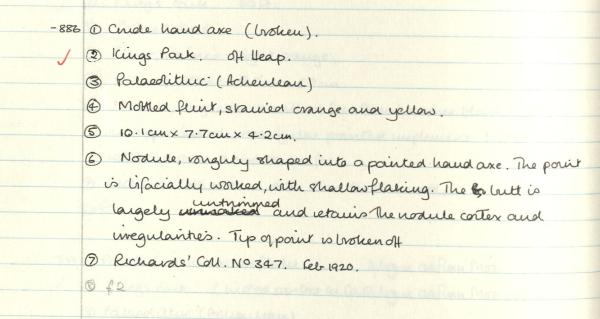 -886 ① Crude hand axe (broken).
✓ ② Kings Park. off Heap.
③ Palaeolithic (Acheulean)
④ Mottled flint, stained orange and yellow.
⑤ 10.1cm x 7.7cm x 4.2cm.
⑥ Nodule, roughly shaped into a pointed hand axe. The point
is bifacially worked, with shallow flaking. The butt is
untrimmed
largely and retains the nodule cortex and
irregularities. Tip of point is broken off
⑦ Richards' Coll. No 347. Feb 1920.
⑧ f2